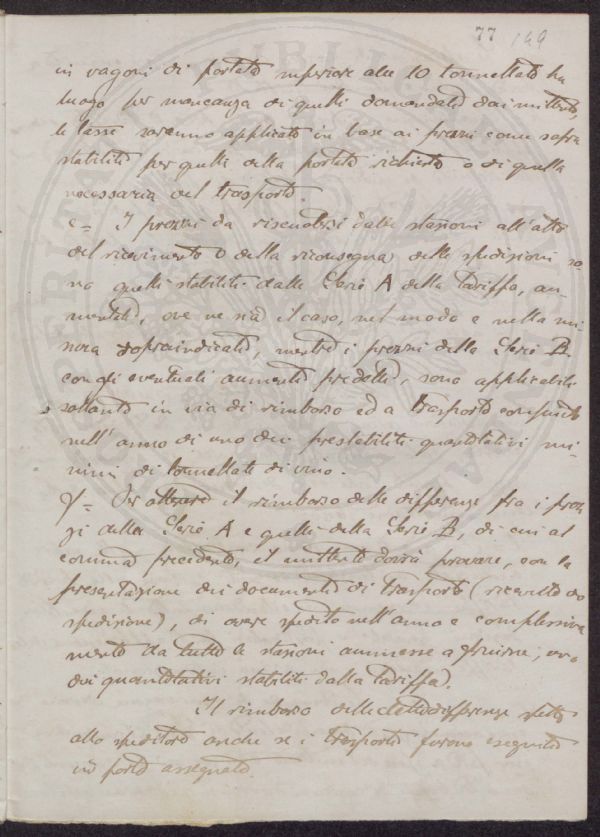 77 149
in vagoni di portata inferiore alle 10 tonnellate ha
luogo per mancanza di quelli domandati dai mittenti,
le tasse saranno applicate in base ai prezzi come sopra
stabiliti per quelli della portata richiesta o di quella
necessaria pel trasporto.
e = I prezzi da riscuotersi dalle stazioni all'atto
del ricevimento o della riconsegna delle spedizioni so
no quelli stabiliti dalla Serie A della Tariffa, au-
mentati, ove ne sia il caso, nel modo e nella mi-
sura sopraindicati, mentre i prezzi della Serie B.
con gli eventuali aumenti predetti, sono applicabili
soltanto in via di rimborso ed a trasporto compiuto
nell'anno di uno dei prestabiliti quantitativi mi-
nimi di tonnellate di vino.
f = Per ottenere il rimborso delle differenze fra i prez
zi della Serie A e quelli della Serie B, di cui al
comma precedente, il mittente dovrà provare, con la
presentazione dei documenti di trasporto (ricevette di
spedizione), di avere spedito nell'anno e complessiva
mente da tutte le stazioni ammesse a fruirne, uno
dei quantitativi stabiliti dalla Tariffa.
Il rimborso delle dette differenze spetta
allo speditore anche se i trasporti furono eseguiti
in porto assegnato.